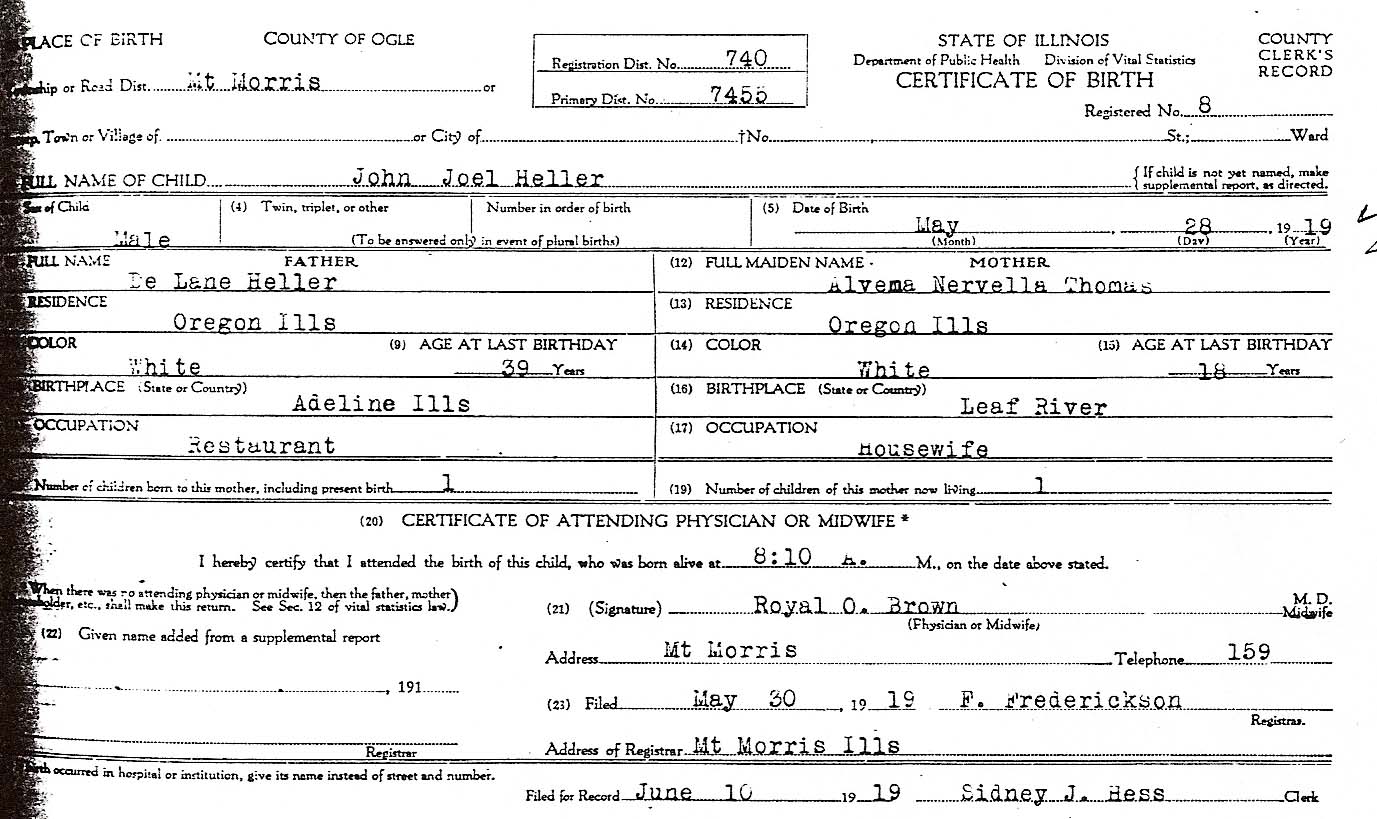 PLACE OF BIRTH COUNTY OF OGLE
Registration Dist. No. 740
STATE OF ILLINOIS
Department of Public Health Division of Vital Statistics
CERTIFICATE OF BIRTH
COUNTY CLERK'S RECORD
or Road Dist. Mt Morris or
Primary Dist. No. 7455
Registered No. 8
Town or Village of or City of †No. St.; Ward
FULL NAME OF CHILD John Joel Heller { If child is not yet named, make supplemental report, as directed.
Sex of Child (4) Twin, triplet, or other Number in order of birth (5) Date of Birth
Male (To be answered only in event of plural births) May , 28 , 19 19
(Month) (Day) (Year)
FULL NAME FATHER (12) FULL MAIDEN NAME MOTHER
De Lane Heller Alvema Nervella Thomas
RESIDENCE (13) RESIDENCE
Oregon Ills Oregon Ills
COLOR (9) AGE AT LAST BIRTHDAY (14) COLOR (15) AGE AT LAST BIRTHDAY
White 39 Years White 18 Years
BIRTHPLACE (State or Country) (16) BIRTHPLACE (State or Country)
Adeline Ills Leaf River
OCCUPATION (17) OCCUPATION
Restaurant Housewife
Number of children born to this mother, including present birth 1 (19) Number of children of this mother now living 1
(20) CERTIFICATE OF ATTENDING PHYSICIAN OR MIDWIFE *
I hereby certify that I attended the birth of this child, who was born alive at 8:10 A. M., on the date above stated.
When there was no attending physician or midwife, then the father, mother
etc., shall make this return. See Sec. 12 of vital statistics law.)
(21) (Signature) Royal O. Brown M. D.
(Physician or Midwife) Midwife
(22) Given name added from a supplemental report
Address Mt Morris Telephone 159
, 191
(23) Filed May 30 , 19 19 F. Frederickson
Registrar.
Registrar
Address of Registrar Mt Morris Ills
birth occurred in hospital or institution, give its name instead of street and number.
Filed for Record June 10 19 19 Sidney J. Hess Clerk